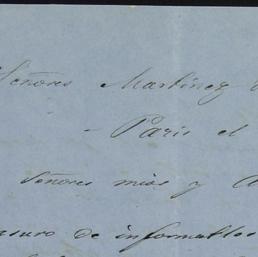 Señores Martinez
- Paris el
Señores mios y
de informarles